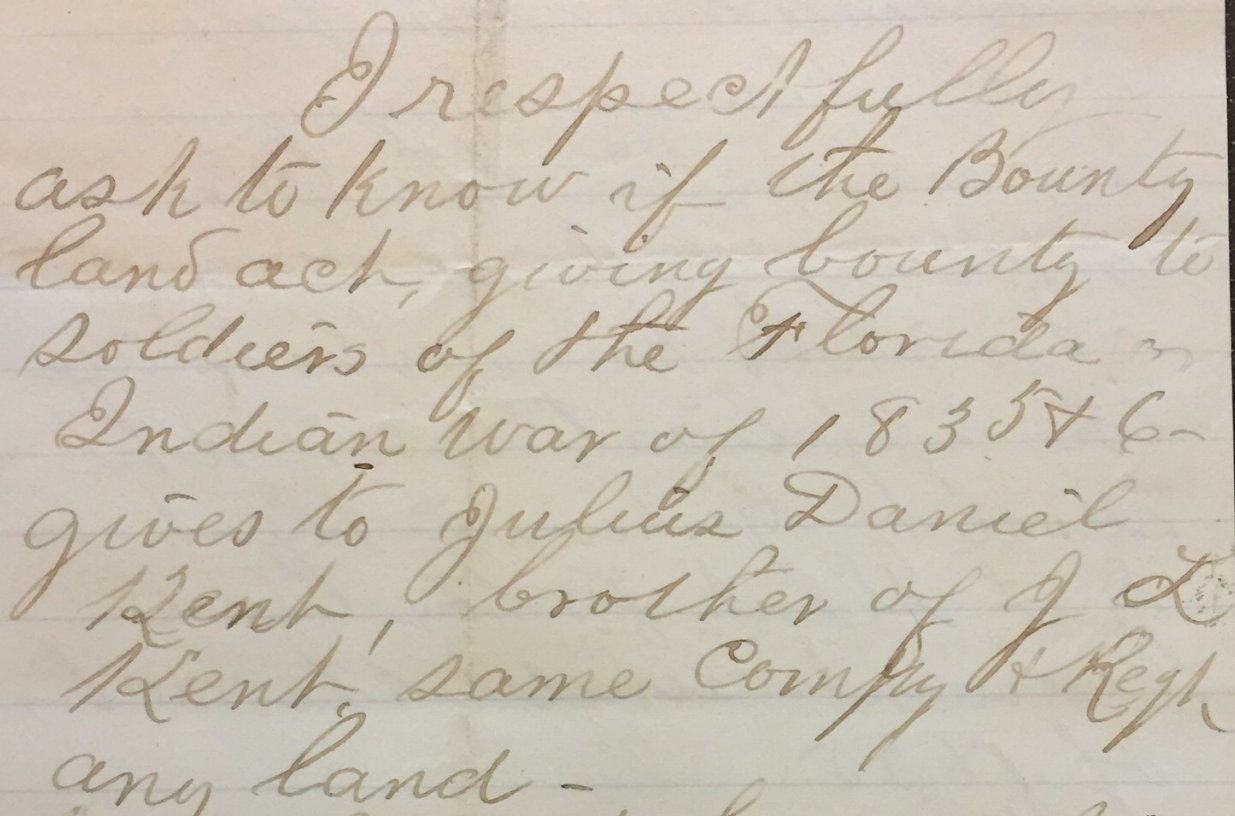 I respectfully
ask to know if the Bounty
land act, giving bounty to
soldiers of the Florida
Indian war of 1835 & 6-
gives to Julius Daniel
Kent, brother of J L
Kent, same Compy & Regt
any land -